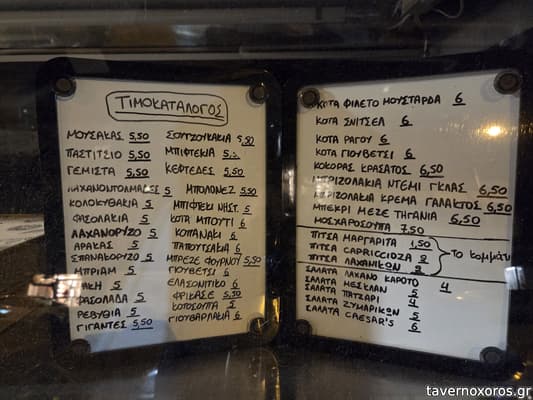 ΤΙΜΟΚΑΤΑΛΟΓΟΣ
ΜΟΥΣΑΚΑΣ 5,50
ΠΑΣΤΙΤΣΙΟ 5,50
ΓΕΜΙΣΤΑ 5,50
ΛΑΧΑΝΟΝΤΟΛΜΑΔΕΣ 5
ΚΟΛΟΚΥΘΑΚΙΑ 5
ΦΑΣΟΛΑΚΙΑ 5
ΛΑΧΑΝΟΡΥΖΟ 5
ΑΡΑΚΑΣ 5
ΣΠΑΝΑΚΟΡΙΖΟ 5
ΜΠΡΙΑΜ 5
ΦΑΚΗ 5
ΦΑΣΟΛΑΔΑ 5
ΡΕΒΥΘΙΑ 5
ΓΙΓΑΝΤΕΣ 5,50
ΣΟΥΤΖΟΥΚΑΚΙΑ 5,50
ΜΠΙΦΤΕΚΙΑ
ΚΕΦΤΕΔΕΣ 5,50
ΜΠΟΛΟΝΕΖ 5,50
ΜΠΙΦΤΕΚΙ ΝΗΣΤ. 5
ΚΟΤΑ ΜΠΟΥΤΙ 6
ΚΟΠΑΝΑΚΙ 6
ΠΑΠΟΥΤΣΑΚΙΑ 6
ΜΠΡΙΖΕ ΦΟΥΡΝΟΥ 5,50
ΓΙΟΥΒΕΤΣΙ 6
ΕΛΑΣΟΝΙΤΙΚΟ 6
ΦΡΙΚΑΣΕ 5,50
ΚΟΤΟΣΟΥΠΑ 5
ΓΙΟΥΒΑΡΛΑΚΙΑ 6
ΚΟΤΑ ΦΙΛΕΤΟ ΜΟΥΣΤΑΡΔΑ 6
ΚΟΤΑ ΣΝΙΤΣΕΛ 6
ΚΟΤΑ ΡΑΓΟΥ 6
ΚΟΤΑ ΓΙΟΥΒΕΤΣΙ 6
ΚΟΚΟΡΑΣ ΚΡΑΣΑΤΟΣ 6,50
ΜΠΡΙΖΟΛΑΚΙΑ ΝΤΕΜΙ ΓΚΛΑΣ 6,50
ΜΠΡΙΖΟΛΑΚΙΑ ΚΡΕΜΑ ΓΑΛΑΚΤΟΣ 6,50
ΜΠΕΚΡΙ ΜΕΖΕ ΤΗΓΑΝΙΑ 6,50
ΜΟΣΧΑΡΟΣΟΥΠΑ 7,50
ΠΙΤΣΑ ΜΑΡΓΑΡΙΤΑ 1,50
ΠΙΤΣΑ CAPRICCIOZA 2
ΠΙΤΣΑ ΛΑΧΑΝΙΚΩΝ 2
Το κομμάτι
ΣΑΛΑΤΑ ΛΑΧΑΝΟ ΚΑΡΟΤΟ 4
ΣΑΛΑΤΑ ΜΕΣΚΛΑΝ 5
ΣΑΛΑΤΑ ΠΑΤΖΑΡΙ 4
ΣΑΛΑΤΑ ΖΥΜΑΡΙΚΩΝ 5
ΣΑΛΑΤΑ CAESAR'S 6
tavernoxoros.gr